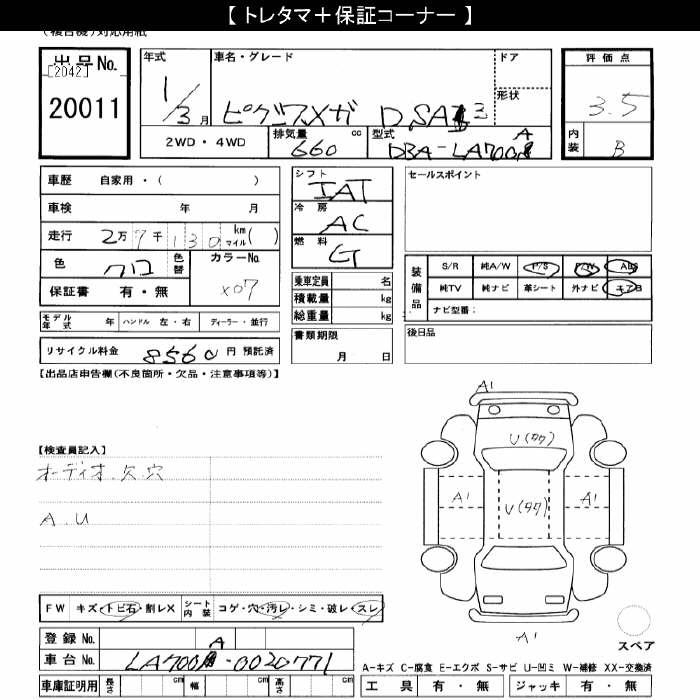 【 トレタマ＋保証コーナー 】
(複合機)対応用紙
出品No.
[2042]
20011
年式 車名・グレード ドア
1/3月 ピクシスメガ D,SAⅢ
形状
2WD・4WD 排気量 660 cc 型式 DBA-LA700A
評価点
3.5
内装 B
車歴 自家用・( )
車検 年 月
走行 2万7千130 km マイル( )
色 クロ 色替 カラーNo. X07
保証書 有・無
モデル年式 年 ハンドル 左・右 ディーラー・並行
リサイクル料金 8560 円 預託済
シフト IAT
冷房 AC
燃料 G
乗車定員 名
積載量 kg
総重量 kg
書類期限
月 日
セールスポイント
装備品 S/R 純A/W P/S P/W ABS
純TV 純ナビ 革シート 外ナビ エアB
ナビ型番:
後日品
【出品店申告欄(不良箇所・欠品・注意事項等)】
【検査員記入】
オーディオ.欠.穴
A.U
A1
U(タワ)
A1 U(タワ) A1
A1
スペア
FW キズ・トビ石・割レX シート内装 コゲ・穴・汚レ・シミ・破レ・スレ
登録No.
車台No. LA700A-0020771
車庫証明用 長さ cm 幅 cm 高さ cm
A-キズ C-腐食 E-エクボ S-サビ U-凹ミ W-補修 XX-交換済
工具 有・無 ジャッキ 有・無